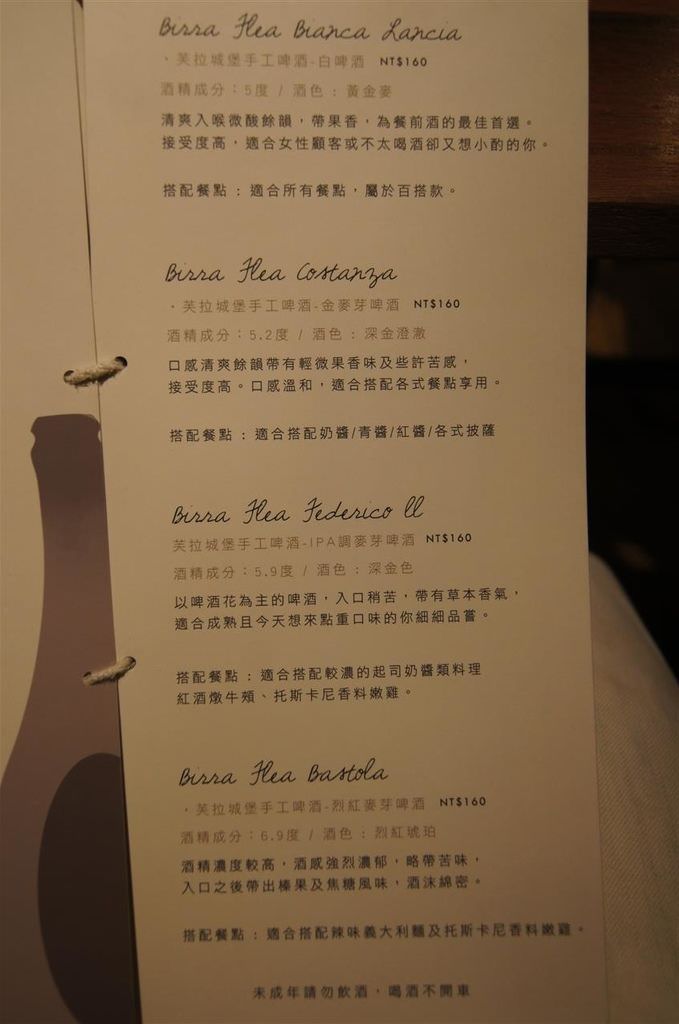 Birra Flea Bianca Lancia
· 芙拉城堡手工啤酒-白啤酒 NT$160
酒精成分：5度 / 酒色：黃金麥
清爽入喉微酸餘韻，帶果香，為餐前酒的最佳首選。
接受度高，適合女性顧客或不太喝酒卻又想小酌的你。
搭配餐點：適合所有餐點，屬於百搭款。
Birra Flea Costanza
· 芙拉城堡手工啤酒-金麥芽啤酒 NT$160
酒精成分：5.2度 / 酒色：深金澄澈
口感清爽餘韻帶有輕微果香味及些許苦感，
接受度高。口感溫和，適合搭配各式餐點享用。
搭配餐點：適合搭配奶醬/青醬/紅醬/各式披薩
Birra Flea Federico ll
芙拉城堡手工啤酒-IPA調麥芽啤酒 NT$160
酒精成分：5.9度 / 酒色：深金色
以啤酒花為主的啤酒，入口稍苦，帶有草本香氣，
適合成熟且今天想來點重口味的你細細品嘗。
搭配餐點：適合搭配較濃的起司奶醬類料理
紅酒燉牛頰、托斯卡尼香料嫩雞。
Birra Flea Bastola
· 芙拉城堡手工啤酒-烈紅麥芽啤酒 NT$160
酒精成分：6.9度 / 酒色：烈紅琥珀
酒精濃度較高，酒感強烈濃郁，略帶苦味，
入口之後帶出榛果及焦糖風味，酒沫綿密。
搭配餐點：適合搭配辣味義大利麵及托斯卡尼香料嫩雞。
未成年請勿飲酒，喝酒不開車